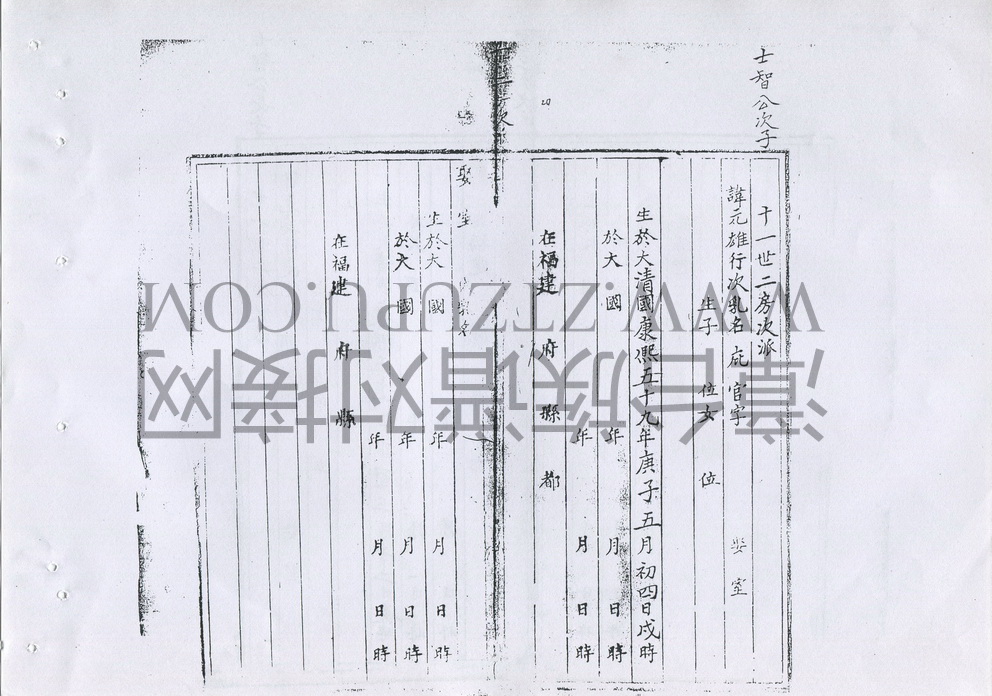 士智公次子
十一世二房次派
諱元雄行次乳名庇 官字
娶室
生子 位女 位
生於大清國康熙五十九年庚子五月初四日戌時
於大 國 年 月 日 時
年 月 日 時
在福建 府 縣 都
娶 室 乳名
生於大 國 年 月 日 時
於大 國 年 月 日 時
年 月 日 時
在福建 府 縣
WWW.ZTZUPU.COM
漳台族谱对接网